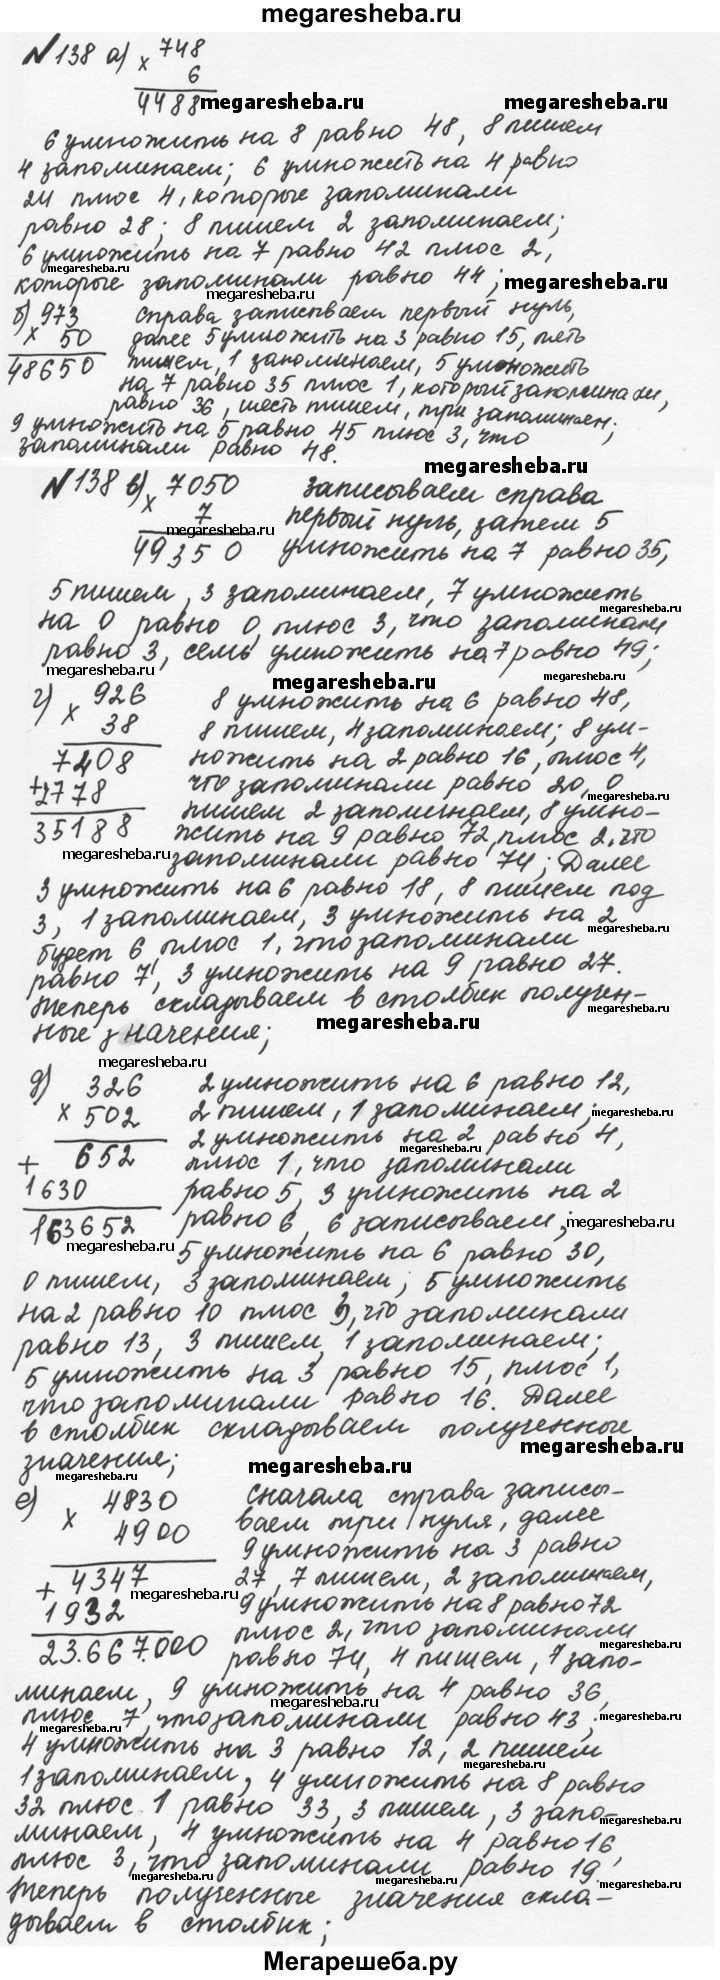 megaresheba.ru
№138 а) × 748
6
4488 megaresheba.ru megaresheba.ru
6 умножить на 8 равно 48, 8 пишем
4 запоминаем; 6 умножить на 4 равно
24 плюс 4, которые запоминали
равно 28; 8 пишем 2 запоминаем;
6 умножить на 7 равно 42 плюс 2,
megaresheba.ru
которые запоминали равно 44; megaresheba.ru
megaresheba.ru
б) 973 справа записываем первый нуль,
× 50 далее 5 умножить на 3 равно 15, пять
48650 пишем, 1 запоминаем, 5 умножить
на 7 равно 35 плюс 1, который запоминали,
равно 36, шесть пишем, три запоминаем;
9 умножить на 5 равно 45 плюс 3, что
запоминали равно 48.
megaresheba.ru
№138 в) × 7050 записываем справа
7 megaresheba.ru первый нуль, затем 5
49350 умножить на 7 равно 35,
5 пишем, 3 запоминаем, 7 умножить
megaresheba.ru
на 0 равно 0, плюс 3, что запоминали
равно 3, семь умножить на 7 равно 49;
megaresheba.ru megaresheba.ru
г) × 926 8 умножить на 6 равно 48,
38 8 пишем, 4 запоминаем; 8 ум-
7408 ножить на 2 равно 16, плюс 4,
+2778 что запоминали равно 20, 0
megaresheba.ru
35188 пишем 2 запоминаем, 8 умно-
жить на 9 равно 72, плюс 2, что
megaresheba.ru
запоминали равно 74; Далее
3 умножить на 6 равно 18, 8 пишем под
3, 1 запоминаем, 3 умножить на 2
megaresheba.ru
будет 6, плюс 1, что запоминали
равно 7, 3 умножить на 9 равно 27.
Теперь складываем в столбик получен-
megaresheba.ru
ные значения; megaresheba.ru
megaresheba.ru
д) 326 2 умножить на 6 равно 12,
× 502 2 пишем, 1 запоминаем; megaresheba.ru
2 умножить на 2 равно 4,
megaresheba.ru
+ 652 плюс 1, что запоминали
1630 равно 5, 3 умножить на 2
163652 равно 6, 6 записываем; megaresheba.ru
megaresheba.ru
5 умножить на 6 равно 30,
0 пишем, 3 запоминаем; 5 умножить
на 2 равно 10 плюс 3, что запоминали
равно 13, 3 пишем, 1 запоминаем;
5 умножить на 3 равно 15, плюс 1,
что запоминали равно 16. Далее
в столбик складываем полученные
megaresheba.ru
значения;
megaresheba.ru megaresheba.ru
е) × 4830 сначала справа записы-
4900 ваем три нуля, далее
9 умножить на 3 равно
+ 4347 27, 7 пишем, 2 запоминаем,
megaresheba.ru
1932 9 умножить на 8 равно 72
плюс 2, что запоминали
megaresheba.ru
23.667.000 равно 74, 4 пишем, 7 запо-
минаем, 9 умножить на 4 равно 36,
megaresheba.ru
плюс 7, что запоминали равно 43; megaresheba.ru
megaresheba.ru
4 умножить на 3 равно 12, 2 пишем
1 запоминаем, 4 умножить на 8 равно
32 плюс 1 равно 33, 3 пишем, 3 запо-
megaresheba.ru
минаем, 4 умножить на 4 равно 16,
megaresheba.ru
плюс 3, что запоминали равно 19.
Теперь полученные значения скла-
дываем в столбик;
Мегарешеба.ру